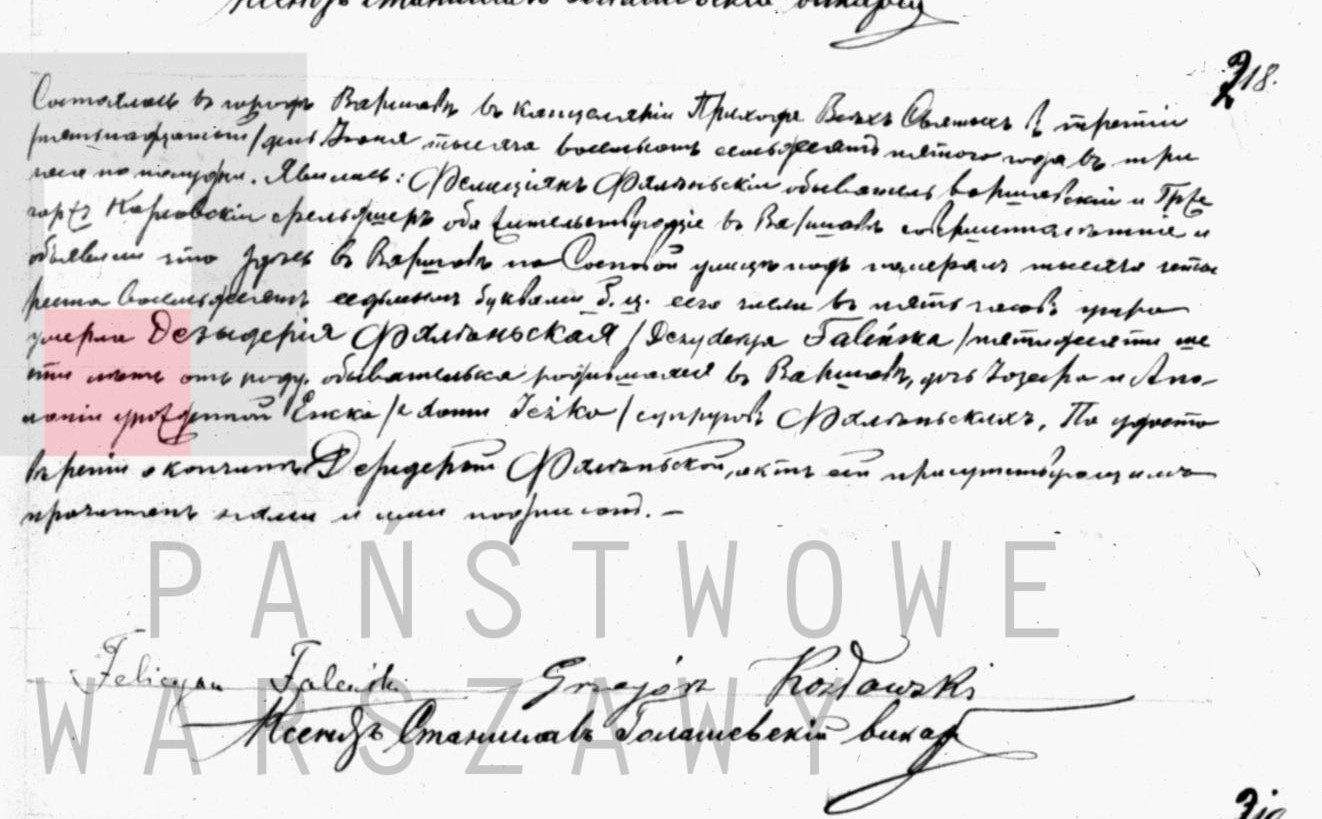 Ксендзъ Станиславъ Голашевскій викарій
318.
Состоялось въ городѣ Варшавѣ въ канцеляріи Прихода Всѣхъ Святыхъ третій
/пятнадцатый/ день Іюня тысяча восемьсотъ семьдесятъ пятого года въ три
часа по полудни. Явились: Фелиціянъ Фалѣньскій обыватель варшавскій и Грже
горжъ фельдшеръ оба жительствующіе въ Варшавѣ совершеннолѣтніе и
объявили что здѣсь въ Варшавѣ на Сосновой улицѣ подъ номеромъ тысяча четы
реста восемьдесятъ седьмымъ буквами сего числа въ пять часовъ утра
умерла Дезыдерія Фалѣньская /Dezyderya Faleńska/ пятидесяти ше
сти лѣтъ отъ роду, обывателька родившаяся въ Варшавѣ, дочь Іозефа и Апо-
лоніи урожденной /z domu Jeżko/ супруговъ Фалѣньскихъ. По удосто
вѣреніи о кончинѣ Дезидеріи Фалѣньской, актъ сей присутствующимъ
прочитанъ нами и ими подписанъ. —
PAŃSTWOWE
Felicyan Faleński Grzegórz Kozłowski
WARSZAWY
Ксендзъ Станиславъ Голашевскій викар
319